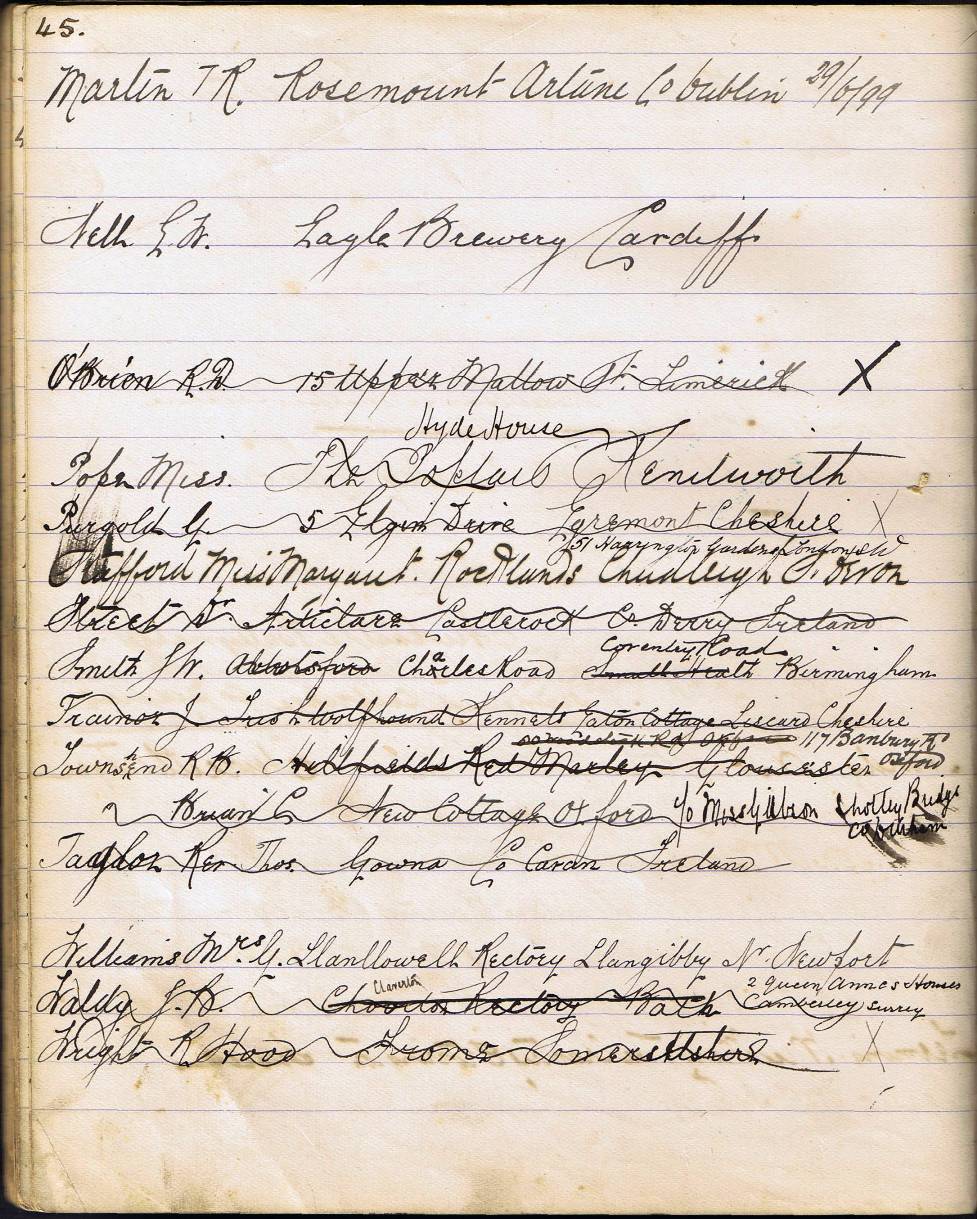 45.
Martin T R. Rosemount Artane Co Dublin 29/6/99
Nell E.W. Eagle Brewery Cardiff
O'Brien R.D 15 Upper Mallow St. Limerick X
Hyde House
Pope Miss. The Poplars Kenilworth
Purgold G. 5 Elgin Drive Egremont Cheshire X
51 Harrington Gardens London SW
Stafford Miss Margaret. Rocklands Chudleigh S. Devon
Street Dr Articlare Castlerock Co Derry Ireland
Coventry Road
Smith J W. Abbotsford Charles Road Small Heath Birmingham
Trainor J Irish Wolfhound Kennels Eaton Cottage Liscard Cheshire
117 Banbury Rd
Oxford
Townshend R B. Hillfields Red Marley Gloucester
" Brian C New Cottage Oxford c/o Miss Gibson Shotley Bridge
Co Durham
Taylor Rev Thos. Gowna Co Cavan Ireland
Williams Mrs. G. Llanllowell Rectory Llangibby Nr Newport
Claverton 2 Queen Annes Houses
Waldy J.B. Rectory Bath Camberley Surrey
Wright R Hood Frome Somersetshire X